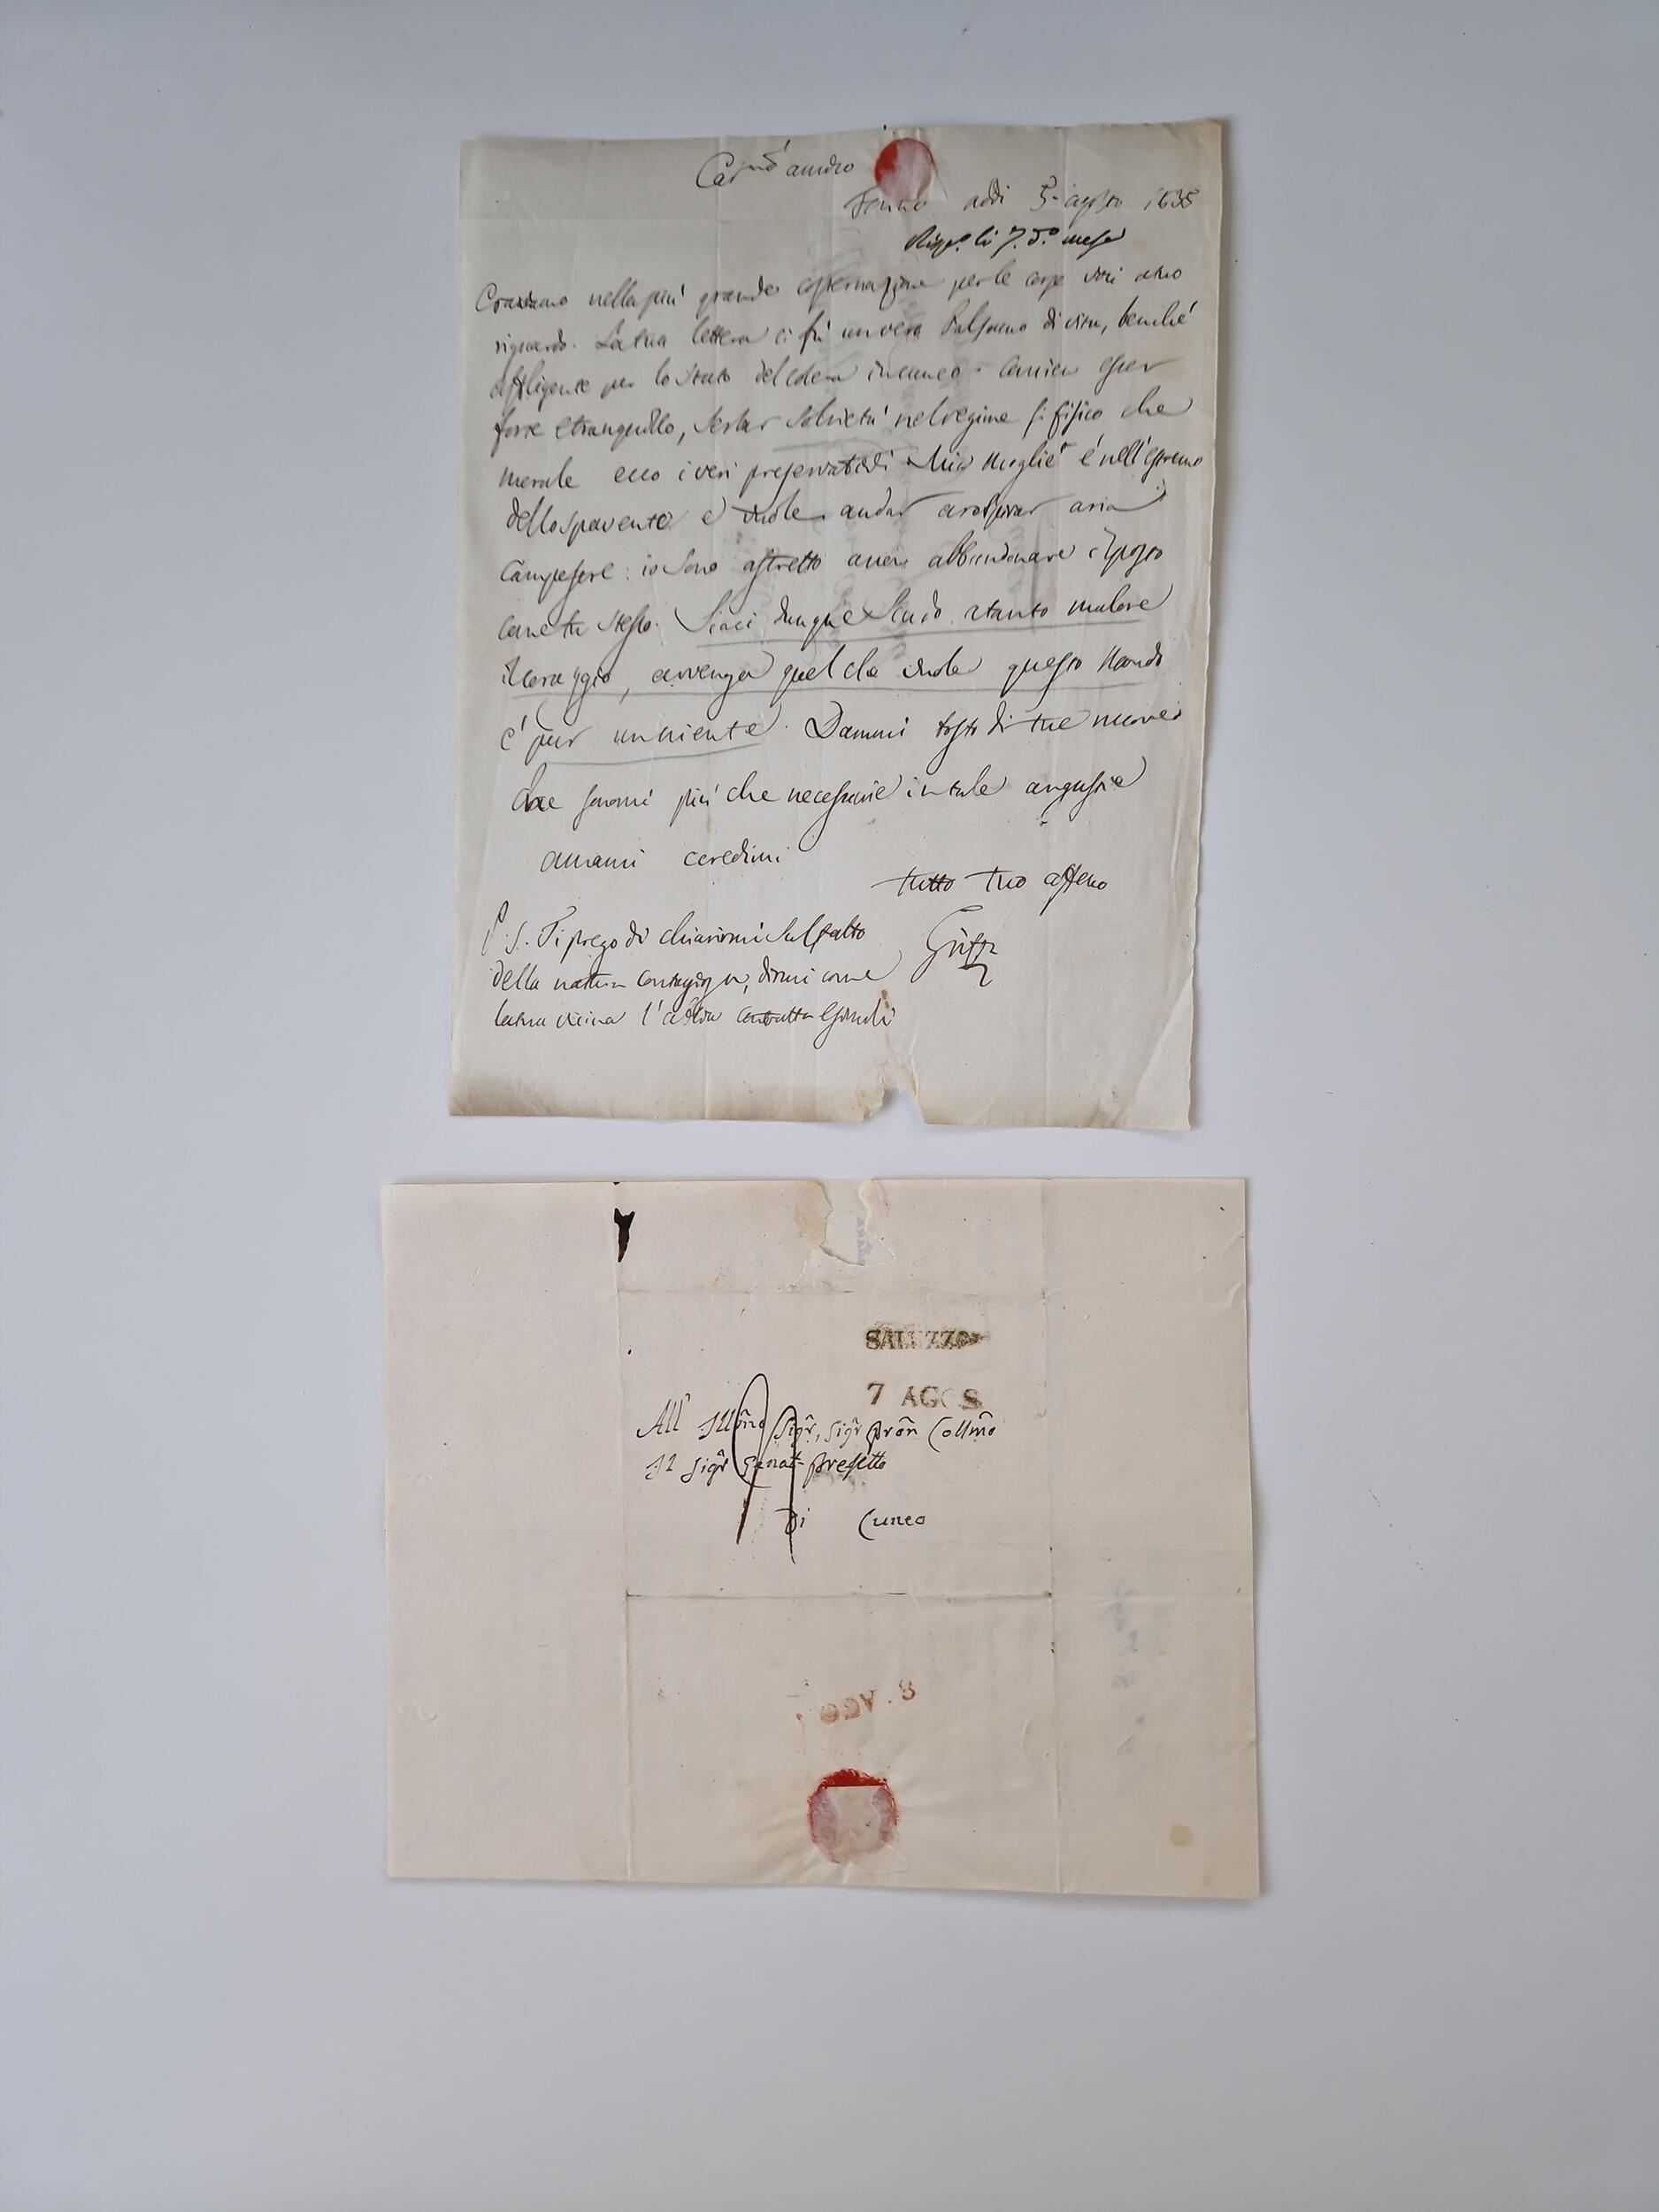 Car.mo amico
addì 5 agosto 1835
Risp.o li 7. d.o mese
nella più grande costernazione per le cose
riguardo. La tua lettera ci fù un vero balsamo di vita, benché
affligente per lo stato del colera in cuneo. esser
forte e tranquillo, serbar sobrietà nel regime sì fisico che
morale ecco i veri preservativi. Mia Moglie è nell'estremo
dello spavento e vuole andar a respirar aria
Campestre: io sono astretto a non abbandonare il posto
come tu stesso. Siaci dunque Scudo a tanto malore
il coraggio, avvenga quel che vuole questo Mondo
è pur un niente. Dammi tosto di tue nuove
che sonomi più che necessarie in tale angustie
amami credimi
tutto tuo affeno
P.S. Ti prego di chiarirmi sul fatto
della natura contagiosa, dimmi come
la tua vicina l'abbia contratta
SALUZZO
7 AGOS
All' Illmo Sigr, Sigr Pron Collmo
Il Sigr Senat Prefetto
di Cuneo
8. AGO